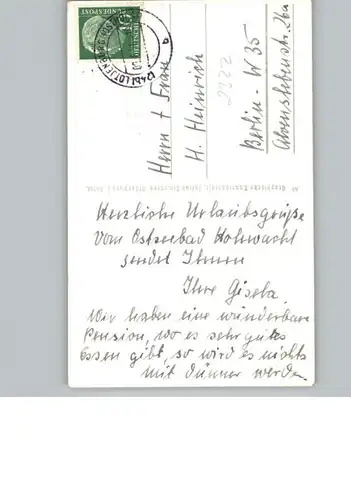 Herzliche Urlaubsgrüße
vom Ostseebad Hohwacht
sendet Ihnen
Ihre Gisela.
Wir haben eine wunderbare
Pension, wo es sehr gutes
Essen gibt, so wird es nichts
mit dünner werden
Herrn + Frau
H. Heinrich
Berlin - W 35
Alvenslebenstr. 26a
10
DEUTSCHE
BUNDESPOST